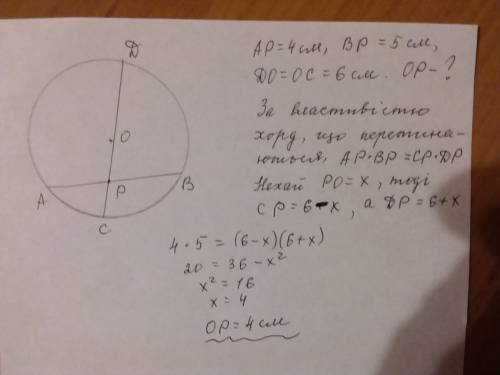 D
O
A
P
B
C
AP=4см, BP=5см,
DO=OC=6см. OP-?
За властивістю
хорд, що перетина-
ються, AP·BP=CP·DP
Нехай PO=x, тоді
CP=6-x, а DP=6+x
4·5=(6-x)(6+x)
20=36-x²
x²=16
x=4
OP=4см